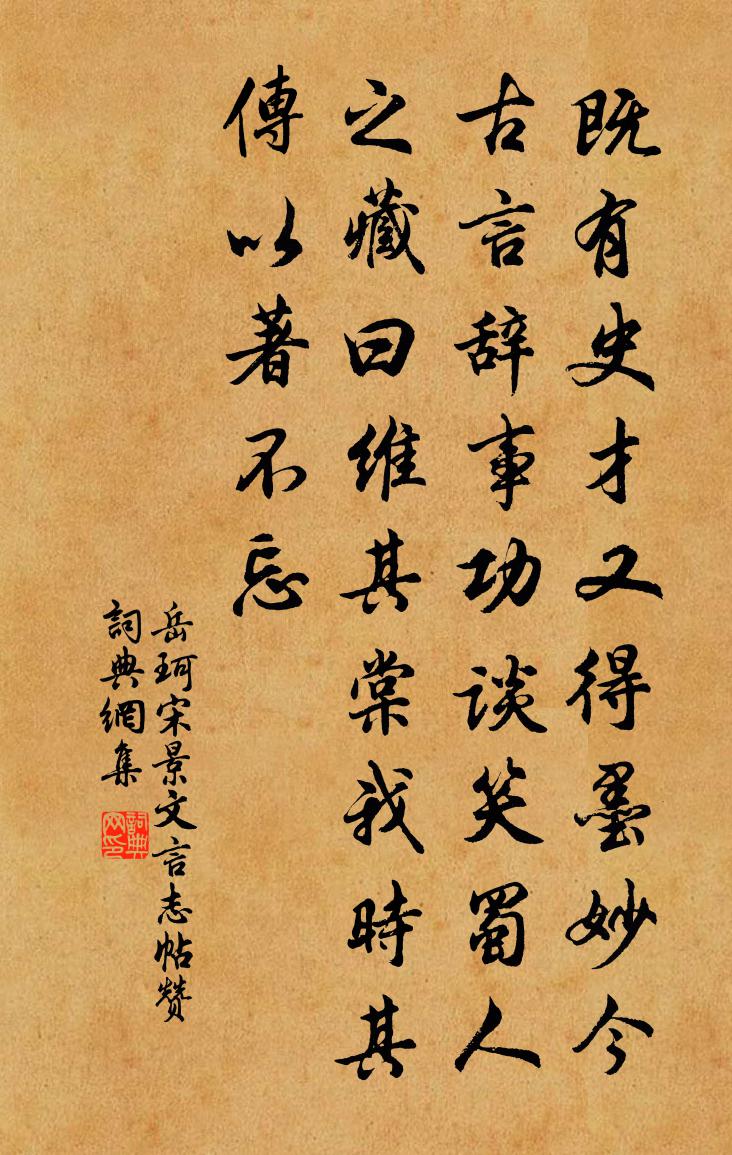 既有史才又得墨妙今
古言辞事功谈笑蜀人
之藏曰维其棠我時其
傳以著不忘
岳珂宋景文言志帖赞
詞典網集
詞典网印